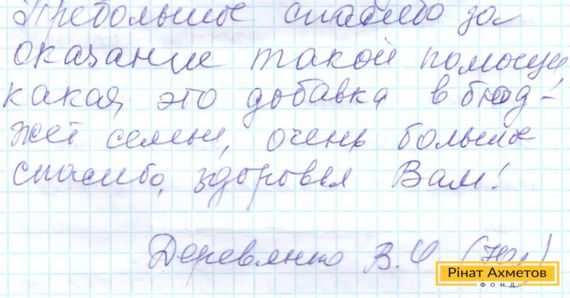 Пребольшое спасибо за
оказание такой помощи,
какая это добавка в бюд-
жет семьи, очень большое
спасибо, здоровья Вам!
Деревянко В.
Рінат Ахметов
ФОНД